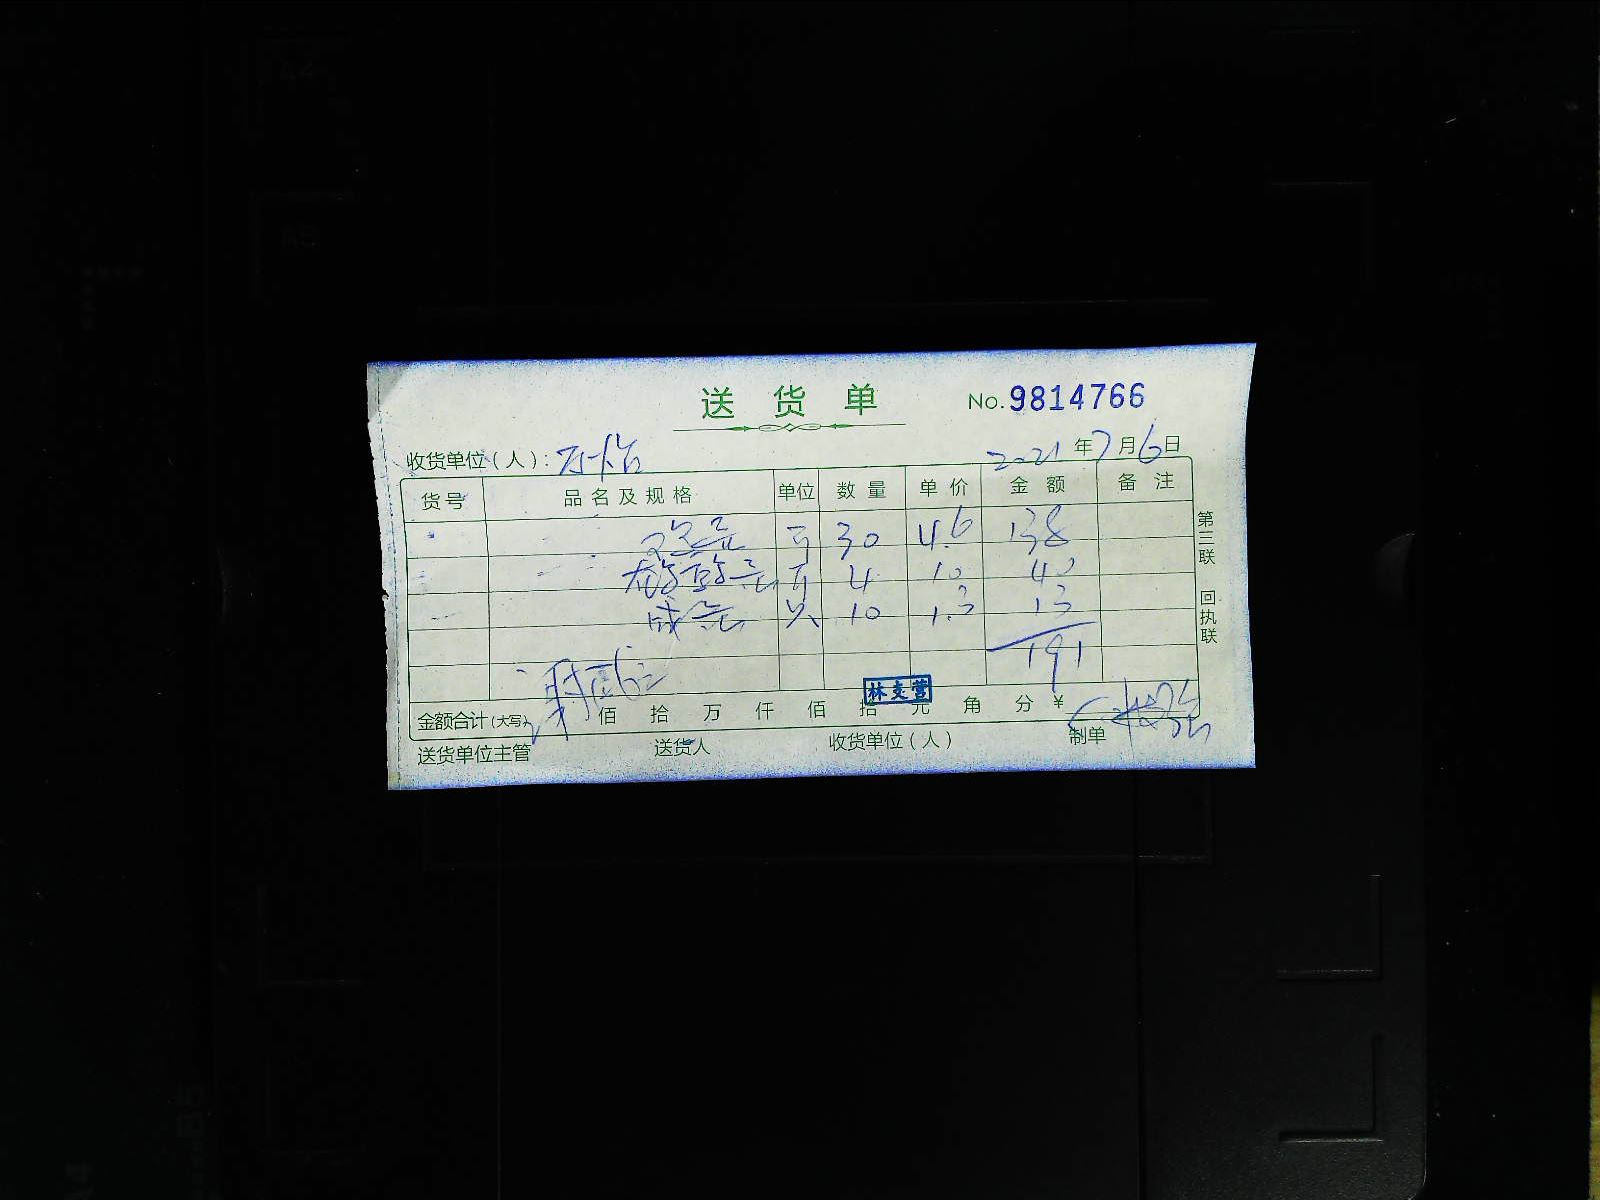 送货单 No.9814766
收货单位(人): 2021年7月6日
货号 品名及规格 单位 数量 单价 金额 备注
30 4.6 138
4 10 40
只 10 1.3 13
191
林支营
金额合计(大写) 佰 拾 万 仟 佰 拾 元 角 分 ¥
送货单位主管 送货人 收货单位(人) 制单
第三联 回执联